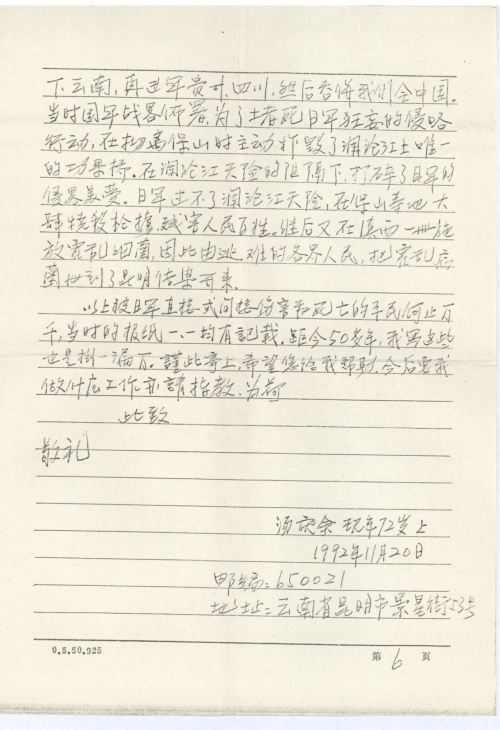 下云南，再进军贵州、四川，然后吞併我们全中国。
当时国军战署佈署，为了土者死日军狂妄的侵略
行动，在扨近保山时主动炸毁了澜沧江上唯一
的功果桥。在澜沧江天险的阻隔下，打碎了日军的
侵略美梦。日军过不了澜沧江天险，在保山等地大
肆烧殺枪掳，残害人民百姓。继后又在滇西一带施
放霍乱细菌，因此由逃难的各界人民，把霍乱病
菌带到了昆明传染开来。
以上被日军直接或间接伤害和死亡的平民何止万
千，当时的报纸一、一均有記載。距今50多年，我写这些
也是掛一漏万。謹此寄上，希望您给我帮助，今后要我
做什広工作亦請指教。为荷
此致
敬礼
汤 余 现年72岁上
1992年11月20日
邮编：650021
地址：云南省昆明市景星街53号
0.5.50.925
第 6 頁